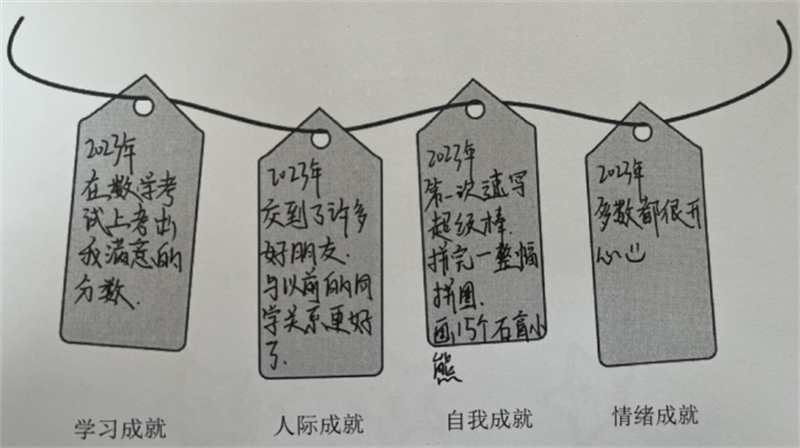 2023年
在数学考
试上考出
我满意的
分数.
学习成就
2023年
交到了许多
好朋友.
与以前的同
学关系更好
了.
人际成就
2023年
第一次速写
超级棒.
拼完一整幅
拼图.
画15个石膏小
熊
自我成就
2023年
多数都很开
心
情绪成就